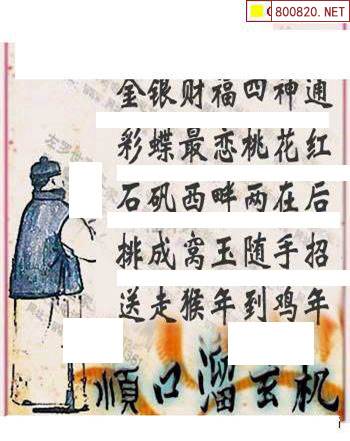 800820.NET
金银财福四神通
彩蝶最恋桃花红
石矶西畔两在后
排成窝玉随手招
送走猴年到鸡年
顺口溜玄机